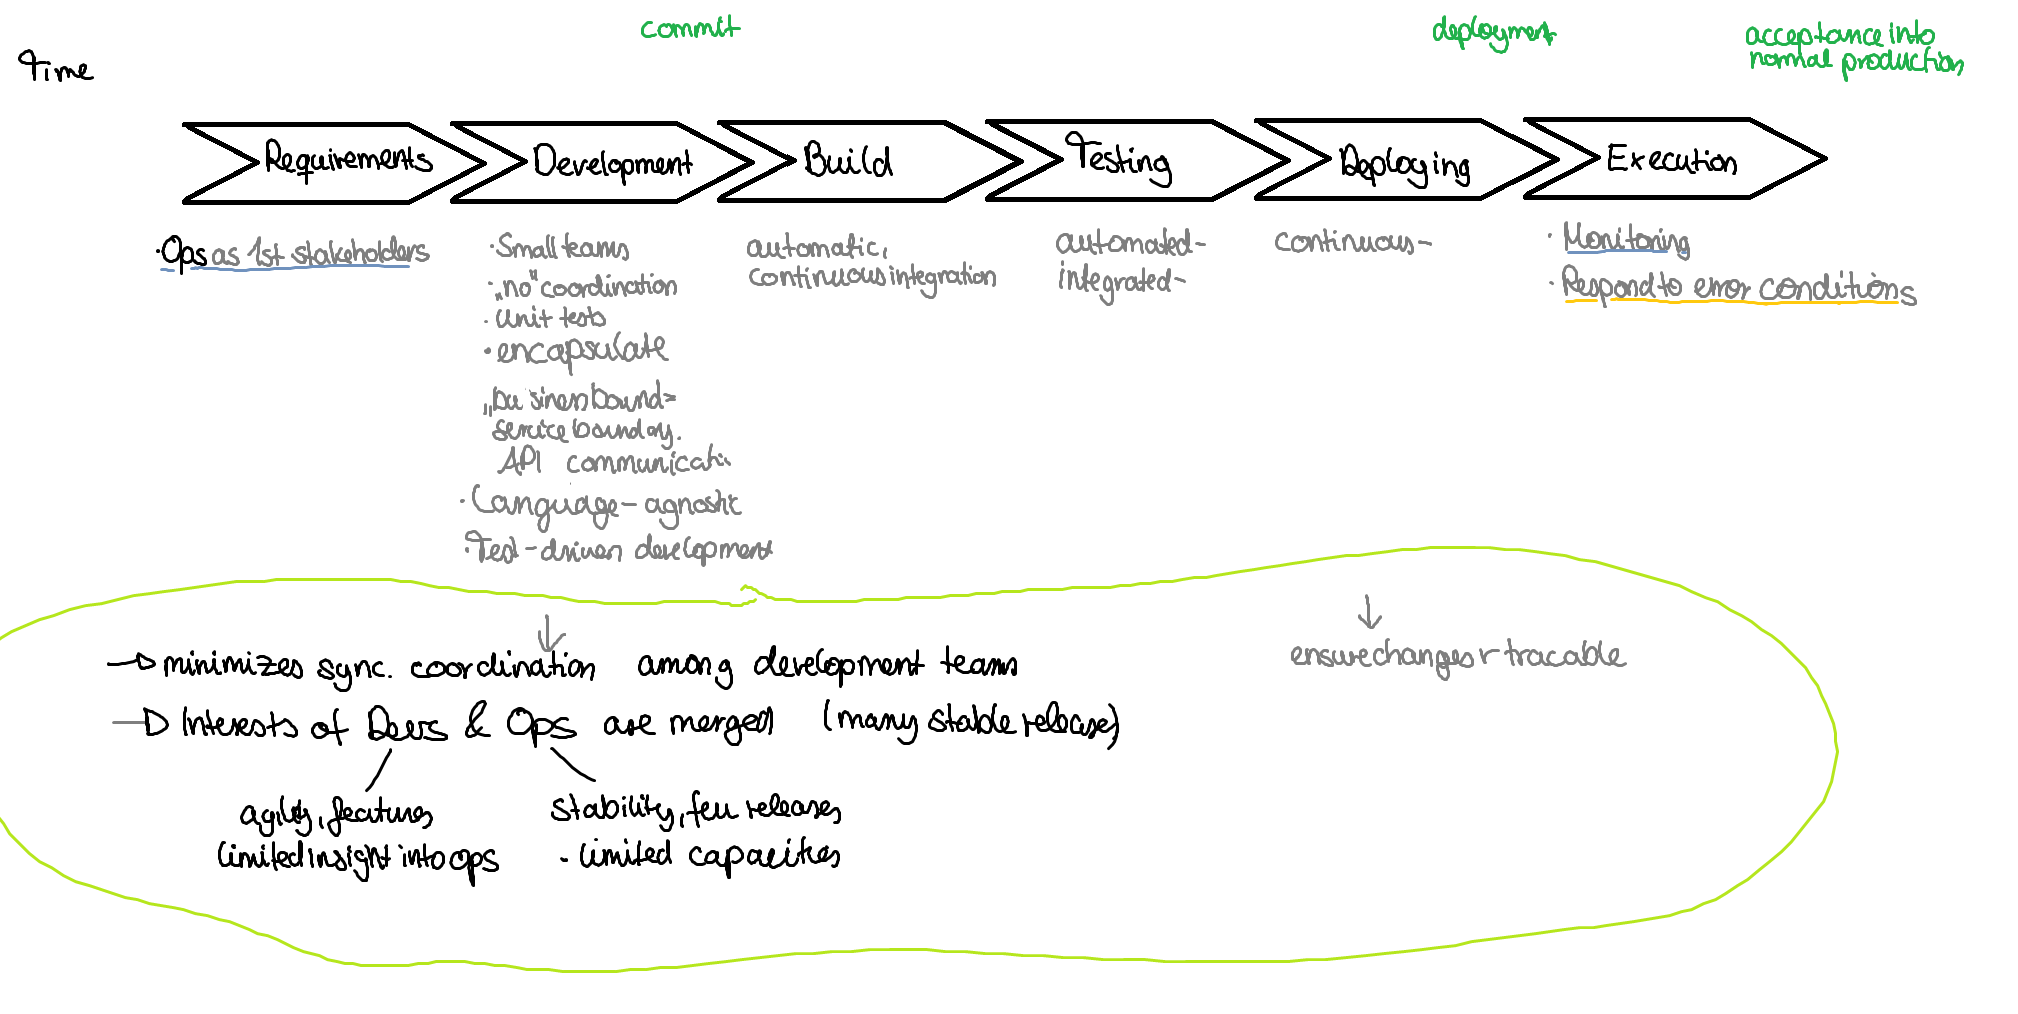 commit
deployment
acceptance into
normal production
Time
Requirements
Development
Build
Testing
Deploying
Execution
·Ops as 1st stakeholders
·Small teams
·„no" coordination
·Unit tests
·encapsulate
„business bound=
service bounday.
API communicati
·Language-agnostic
·Test-driven development
automatic,
continuous integration
automated-
integrated-
continuous-
·Monitoring
·Respond to error conditions
→ minimizes sync. coordination among development teams
→ Interests of Devs & Ops are merged (many stable releases)
agility, features
limited insight into ops
stability, few releases
·limited capacities
↓
ensure changes r tracable